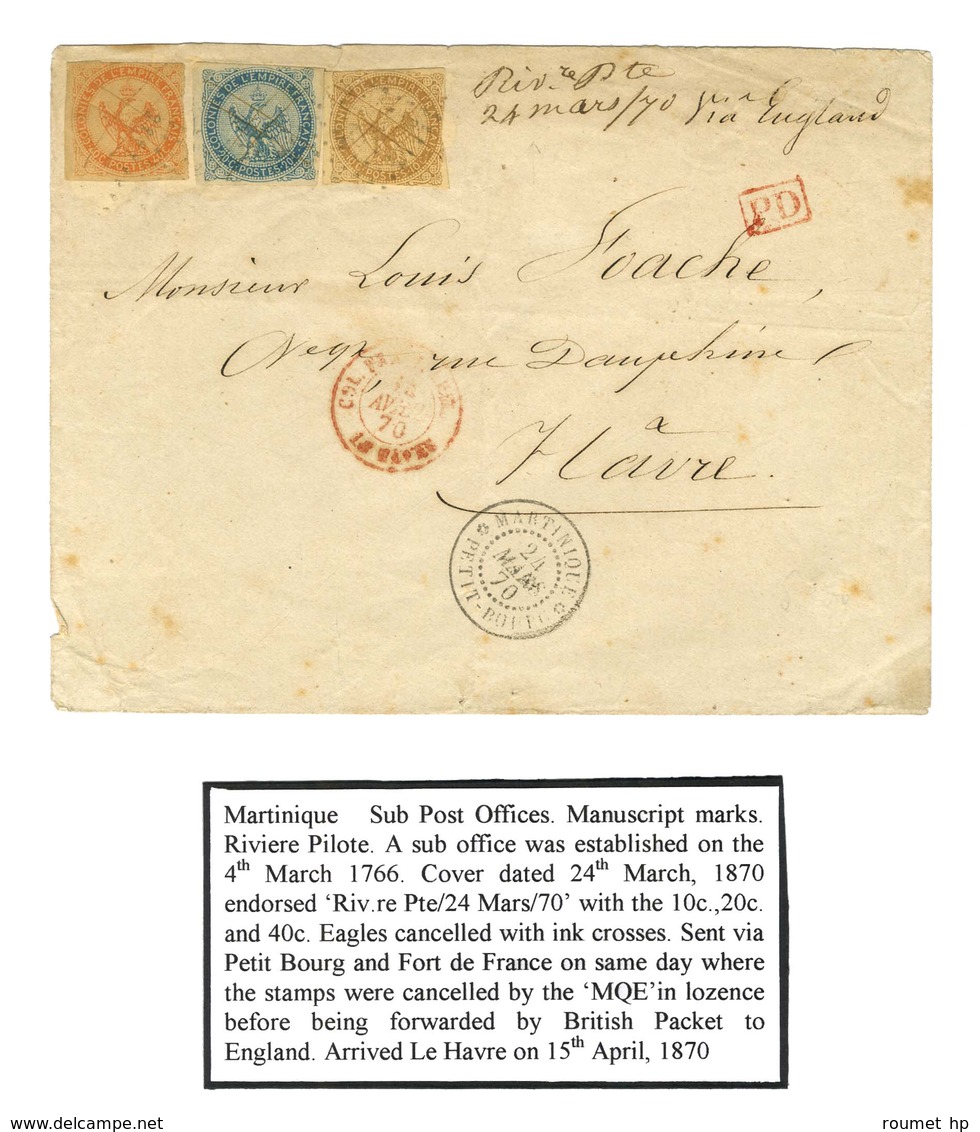 COLONIES DE L'EMPIRE FRANÇAIS
40c. POSTES. 40c.
COLONIES DE L'EMPIRE FRANÇAIS
20c. POSTES. 20c.
Riv.re Pte
24 mars/70 Via England
PD
Monsieur Louis Foache,
Negt, rue Dauphine
à
Hâvre.
COL.
AVRIL
70
LE HAVRE
MARTINIQUE
24
MARS
70
PETIT-BOURG
Martinique Sub Post Offices. Manuscript marks.
Riviere Pilote. A sub office was established on the
4th March 1766. Cover dated 24th March, 1870
endorsed ‘Riv.re Pte/24 Mars/70’ with the 10c.,20c.
and 40c. Eagles cancelled with ink crosses. Sent via
Petit Bourg and Fort de France on same day where
the stamps were cancelled by the ‘MQE’in lozence
before being forwarded by British Packet to
England. Arrived Le Havre on 15th April, 1870
www.delcampe.net
roumet hp